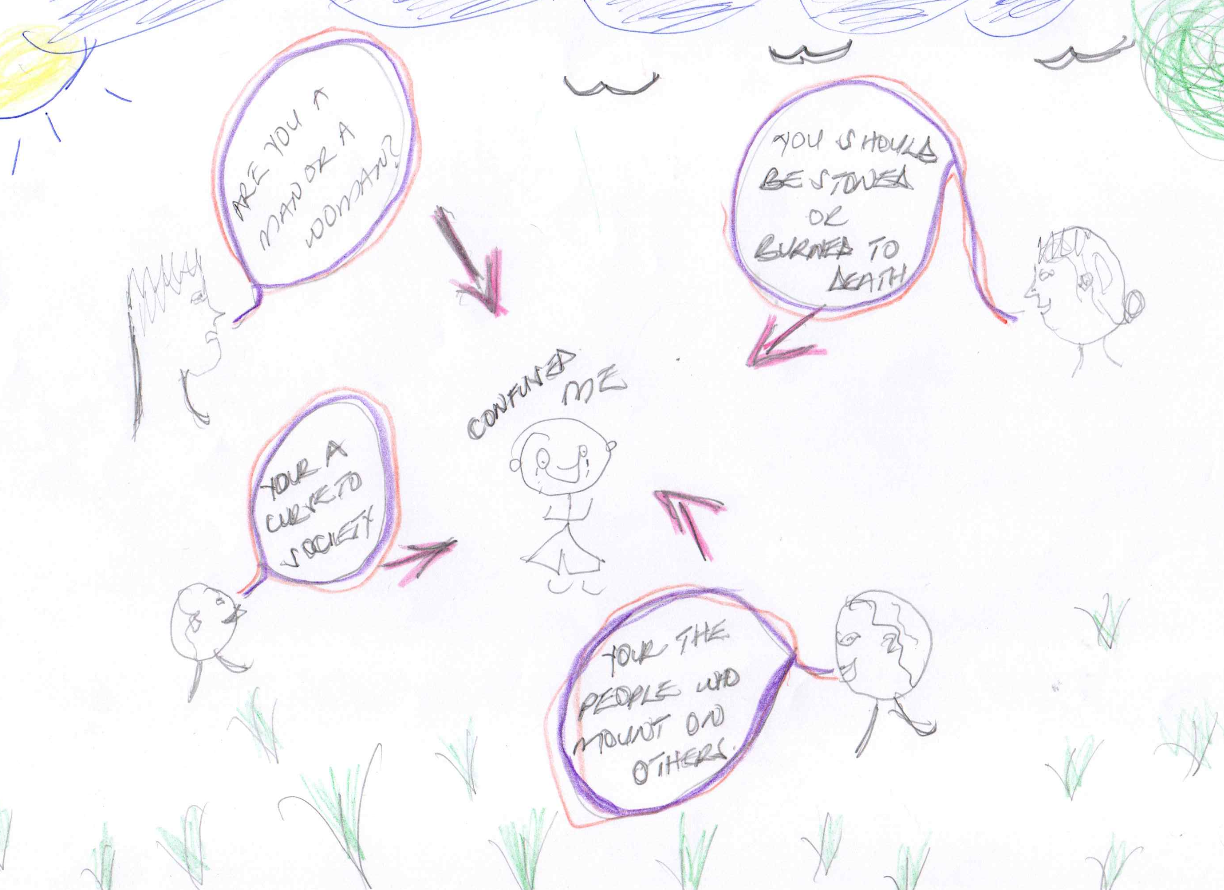 ARE YOU A
MAN OR A
WOMAN?
YOU SHOULD
BE STONED
OR
BURNED TO
DEATH
CONFUSED
ME
YOUR A
CURSE TO
SOCIETY
YOUR THE
PEOPLE WHO
MOUNT ON
OTHERS.